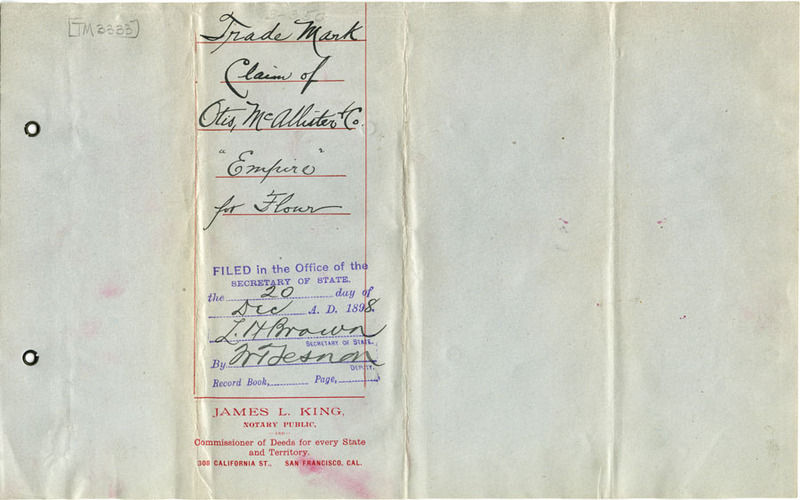 [TM 3333]
Trade Mark
Claim of
Otis, McAllister & Co.
"Empire"
for Flour
FILED in the Office of the
SECRETARY OF STATE.
the 20 day of
Dec A. D. 1898.
L. H. Brown
SECRETARY OF STATE.
By
DEPUTY.
Record Book, Page,
JAMES L. KING,
NOTARY PUBLIC,
—AND—
Commissioner of Deeds for every State
and Territory.
308 CALIFORNIA ST., SAN FRANCISCO, CAL.